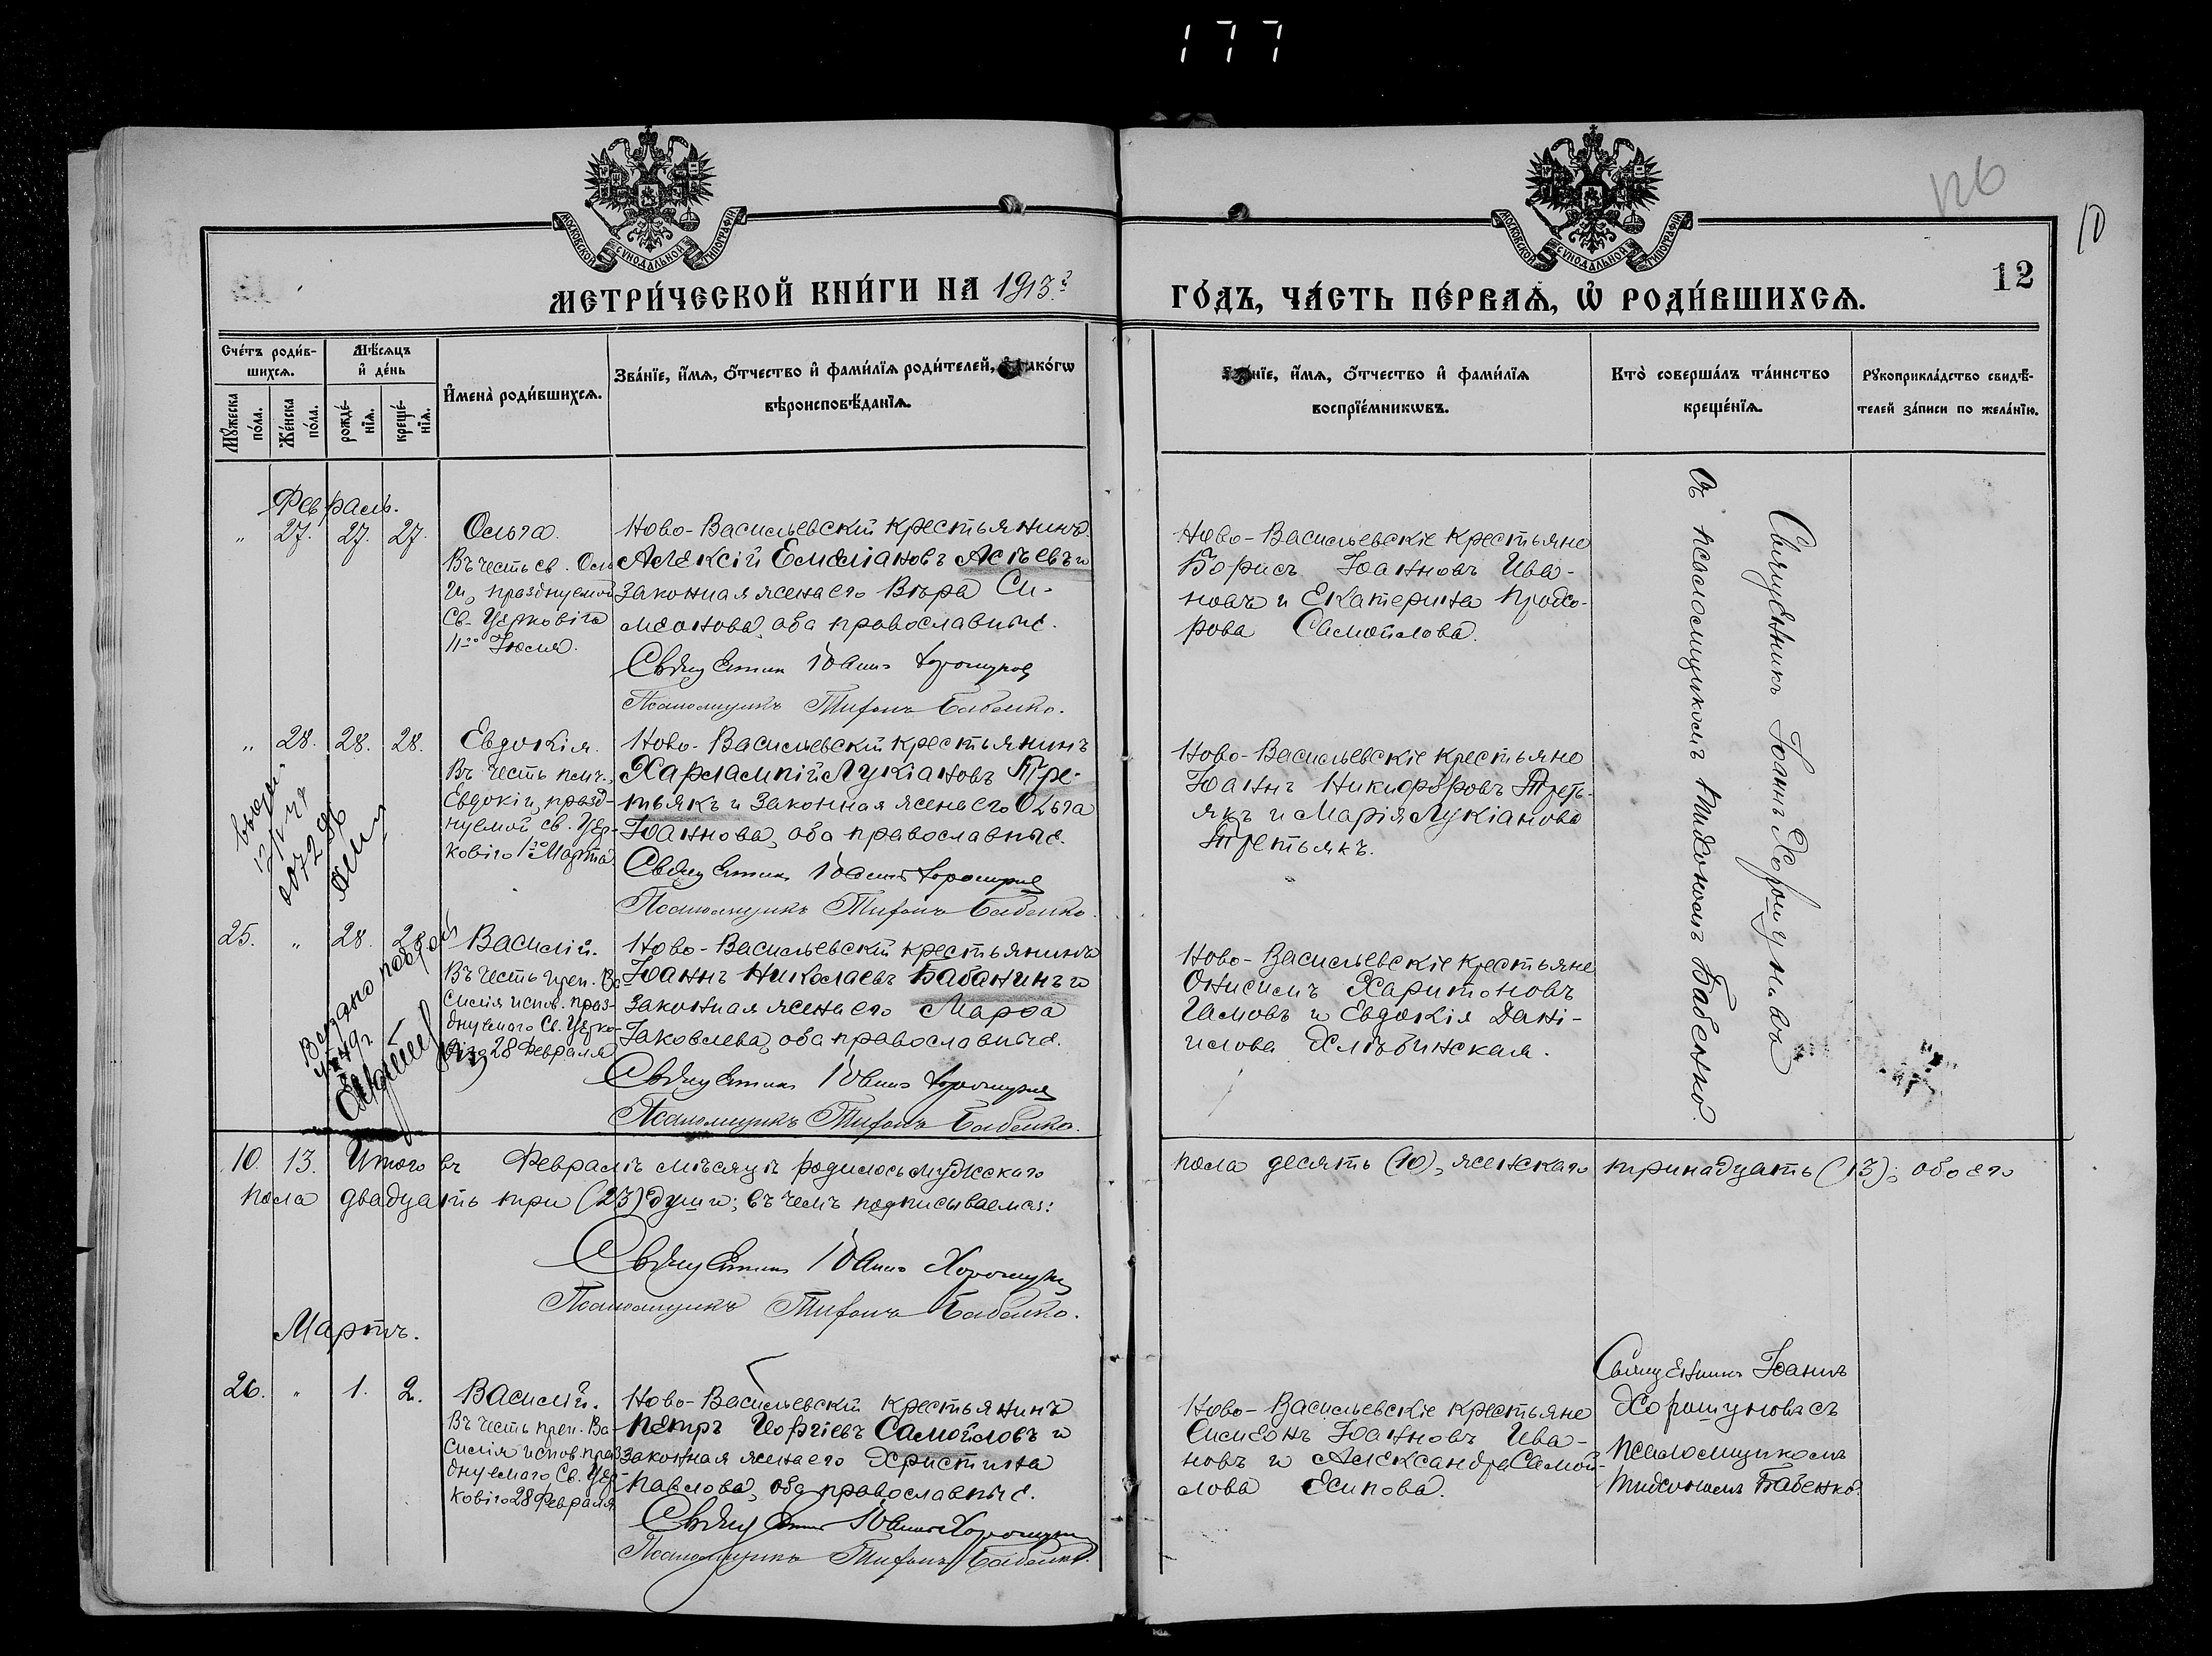 177
126
10
12
МОСКОВСКОЙ СѴНОДАЛЬНОЙ ТИПОГРАФІИ
МОСКОВСКОЙ СѴНОДАЛЬНОЙ ТИПОГРАФІИ
МЕТРИ́ЧЕСКОЙ КНИ́ГИ НА 1913 г.
ГО́ДЪ, ЧА́СТЬ ПЕ́РВАѦ, Ѡ҆ РОДИ́ВШИХСѦ.
Сче́тъ роди́в-
шихсѧ.
Мѣ́сѧцъ
и҆ де́нь
Мꙋ́жеска
по́ла.
Же́нска
по́ла.
рожде́-
нїѧ.
креще́-
нїѧ.
И҆мена̀ роди́вшихсѧ.
Зва́нїе, и҆́мѧ, ѻ҆́тчество и҆ фами́лїѧ роди́телей, и҆ како́гѡ
вѣроисповѣ́данїѧ.
Зва́нїе, и҆́мѧ, ѻ҆́тчество и҆ фами́лїѧ
воспрїе́мникѡвъ.
Кто̀ соверша́лъ та́инство
креще́нїѧ.
Рꙋкоприкла́дство свидѣ́-
телей за́писи по жела́нїю.
Февраль.
„ 27. 27. 27.
Ольга.
Въ честь св. Оль
ги, празднуемой
Св. Церковію
11го Іюля.
Ново-Васильевскій крестьянинъ
Алексій Емеліановъ Асѣевъ и
законная жена его Вѣра Си-
меонова, оба православные.
Священникъ Іоаннъ Хорошуновъ
Псаломщикъ Тихонъ Бабенко.
Ново-Васильевскіе крестьяне
Борисъ Іоанновъ Ива-
новъ и Екатерина Прохо-
рова Самойлова.
Священникъ Іоаннъ Хорошуновъ
съ псаломщикомъ Тихономъ Бабенко.
„ 28. 28. 28.
Евдокія.
Въ честь пмч.
Евдокіи, празд-
нуемой св. Цер-
ковію 1го Марта
Ново-Васильевскій крестьянинъ
Харлампій Лукіановъ Тре-
тьякъ и законная жена его Ольга
Іоаннова, оба православные.
Священникъ Іоаннъ Хорошуновъ
Псаломщикъ Тихонъ Бабенко.
Ново-Васильевскіе крестьяне
Іоаннъ Никифоровъ Треть-
якъ и Марія Лукіанова
Третьякъ.
25. „ 28. 28.
Василій.
Въ честь преп. Ва
силія испов. праз-
днуемаго Св. Церко-
вію 28 Февраля
Ново-Васильевскій крестьянинъ
Іоаннъ Николаевъ Бабанинъ и
законная жена его Марфа
Іаковлева, оба православные.
Священникъ Іоаннъ Хорошуновъ
Псаломщикъ Тихонъ Бабенко.
Ново-Васильевскіе крестьяне
Онисимъ Харитоновъ
Гамовъ и Евдокія Дані-
илова Хлѣбинская.
10. 13. Итого въ Февралѣ мѣсяцѣ родилось мужескаго
пола десять (10), женскаго тринадцать (13); обоего
пола двадцать три (23) души; въ чемъ подписываемся:
Священникъ Іоаннъ Хорошуновъ
Псаломщикъ Тихонъ Бабенко.
Мартъ.
26. „ 1. 2.
Василій.
Въ честь преп. Ва-
силія испов. праз
днуемаго Св. Цер-
ковію 28 Февраля
Ново-Васильевскій крестьянинъ
Петръ Георгіевъ Самойловъ и
законная жена его Христина
Павлова, оба православные.
Священникъ Іоаннъ Хорошуновъ
Псаломщикъ Тихонъ Бабенко.
Ново-Васильевскіе крестьяне
Симеонъ Іоанновъ Ива-
новъ и Александра Самой-
лова Есипова.
Священникъ Іоаннъ
Хорошуновъ съ
псаломщикомъ
Тихономъ Бабенко.